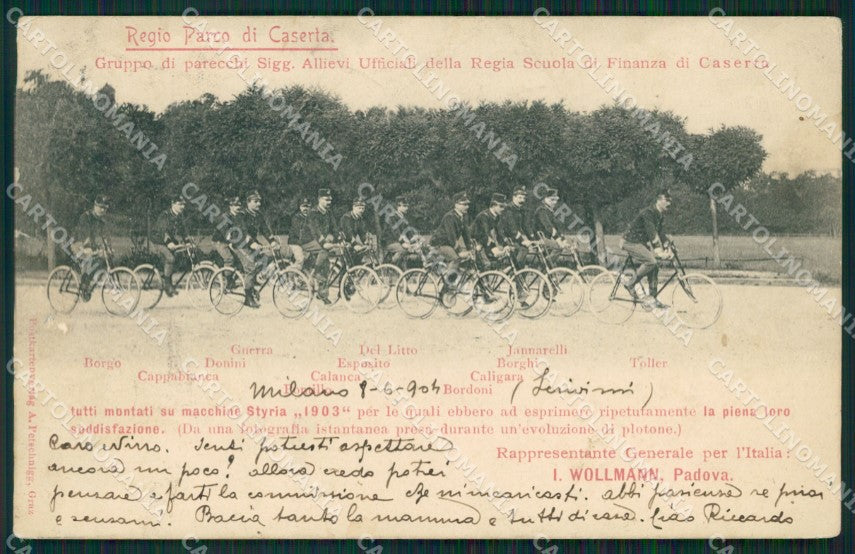 Regio Parco di Caserta.
Gruppo di parecchi Sigg. Allievi Ufficiali della Regia Scuola di Finanza di Caserta
Guerra Del Litto Jannarelli
Borgo Donini Esposito Borghi Toller
Cappabianca Calanca Caligara
Bordoni
Milano 8-6-904 (Scrivimi)
tutti montati su macchine Styria „1903“ per le quali ebbero ad esprimere ripetutamente la piena loro
soddisfazione. (Da una fotografia istantanea presa durante un'evoluzione di plotone.)
Rappresentante Generale per l'Italia:
I. WOLLMANN, Padova.
Caro Nino. Senti potresti aspettare
ancora un poco? allora credo potrei
pensare a farti la commissione che m'incaricasti. abbi pazienza se puoi
e scusami. Bacia tanto la mamma e tutti di casa. Ciao Riccardo
Postkartenverlag A. Perschnigg, Graz
CARTOLINOMANIA